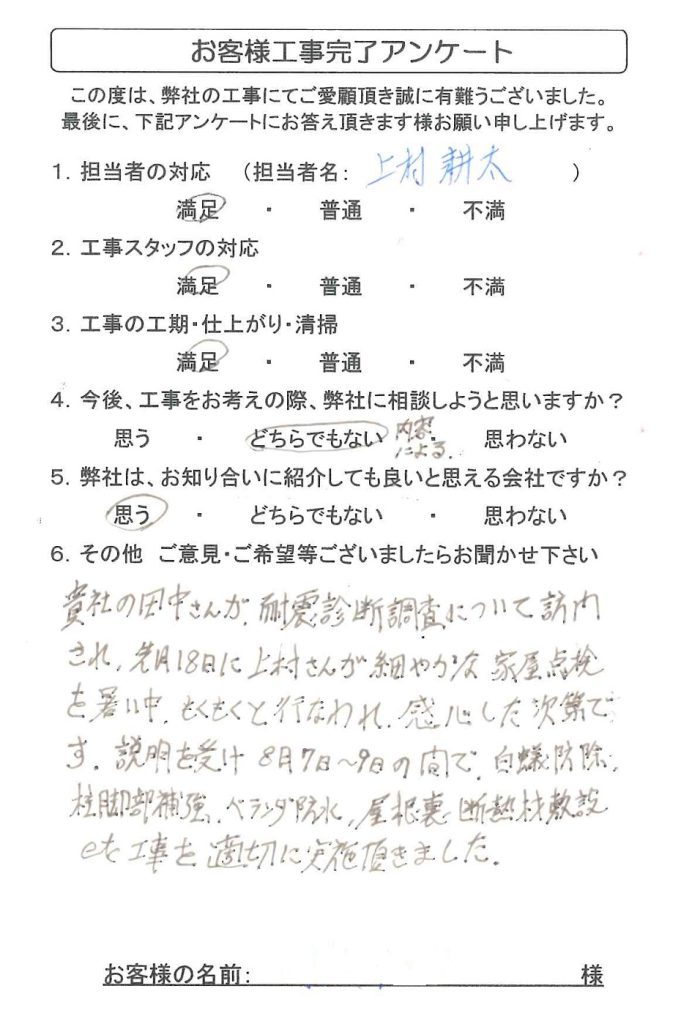 お客様工事完了アンケート
この度は、弊社の工事にてご愛顧頂き誠に有難うございました。
最後に、下記アンケートにお答え頂きます様お願い申し上げます。
1. 担当者の対応 （担当者名： 上村 耕太 ）
満足 ・ 普通 ・ 不満
2. 工事スタッフの対応
満足 ・ 普通 ・ 不満
3. 工事の工期・仕上がり・清掃
満足 ・ 普通 ・ 不満
4. 今後、工事をお考えの際、弊社に相談しようと思いますか？
思う ・ どちらでもない 内容による. ・ 思わない
5. 弊社は、お知り合いに紹介しても良いと思える会社ですか？
思う ・ どちらでもない ・ 思わない
6. その他 ご意見・ご希望等ございましたらお聞かせ下さい
貴社の田中さんが、耐震診断調査について訪内
され、先月18日に上村さんが細やかな家屋点検
を暑い中、もくもくと行なわれ、感心した次第で
す. 説明を受け 8月7日～9日の間で、白蟻防除、
柱脚部補強、ベランダ防水、屋根裏断熱材敷設
etc工事を適切に実施頂きました.
お客様の名前： 様